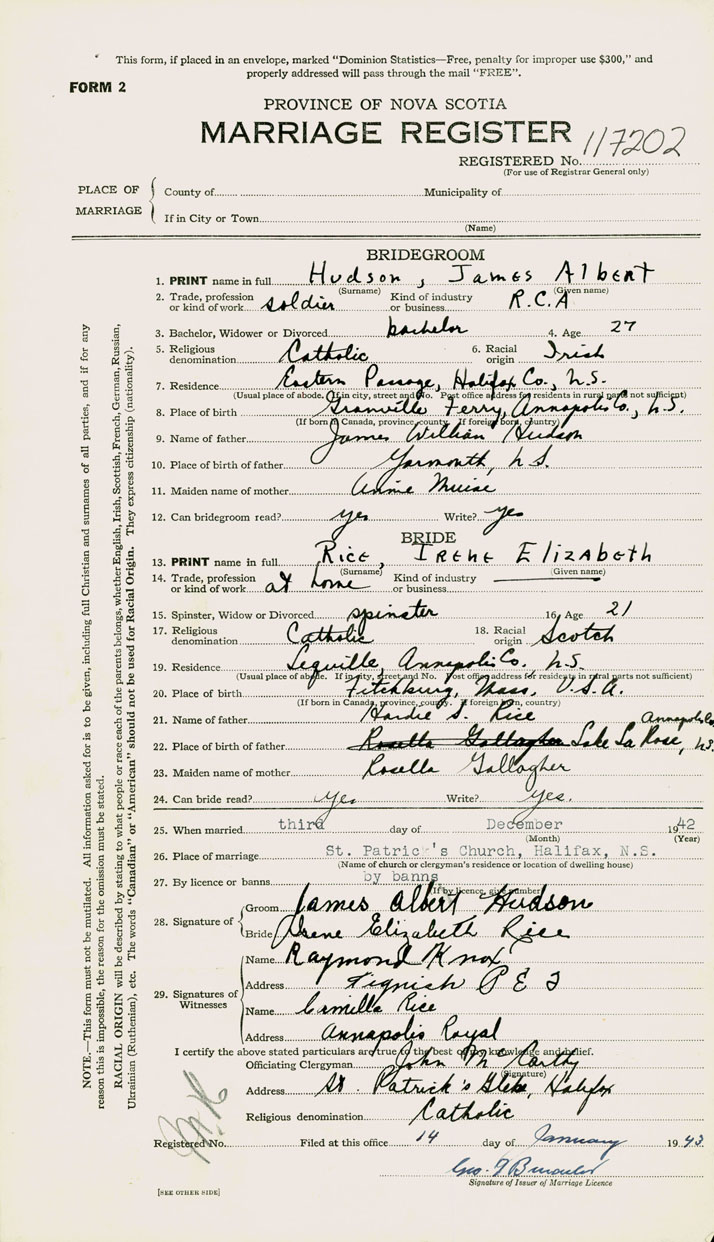 This form, if placed in an envelope, marked "Dominion Statistics—Free, penalty for improper use $300," and
properly addressed will pass through the mail "FREE".
FORM 2
PROVINCE OF NOVA SCOTIA
MARRIAGE REGISTER
REGISTERED No. 117202
(For use of Registrar General only)
PLACE OF MARRIAGE
County of Municipality of
If in City or Town
(Name)
BRIDEGROOM
1. PRINT name in full Hudson, James Albert
(Surname) (Given name)
2. Trade, profession or kind of work soldier Kind of industry or business R.C.A
3. Bachelor, Widower or Divorced bachelor 4. Age 27
5. Religious denomination Catholic 6. Racial origin Irish
7. Residence Eastern Passage, Halifax Co., N.S.
(Usual place of abode. If in city, street and No. Post office address for residents in rural parts not sufficient)
8. Place of birth Granville Ferry, Annapolis Co., N.S.
(If born in Canada, province, county. If foreign born, country)
9. Name of father James William Hudson
10. Place of birth of father Yarmouth, N.S.
11. Maiden name of mother Annie Muise
12. Can bridegroom read? yes Write? yes
BRIDE
13. PRINT name in full Rice, Irene Elizabeth
(Surname) (Given name)
14. Trade, profession or kind of work at home Kind of industry or business
15. Spinster, Widow or Divorced spinster 16. Age 21
17. Religious denomination Catholic 18. Racial origin Scotch
19. Residence Lequille, Annapolis Co., N.S.
(Usual place of abode. If in city, street and No. Post office address for residents in rural parts not sufficient)
20. Place of birth Fitchburg, Mass, U.S.A.
(If born in Canada, province, county. If foreign born, country)
21. Name of father Hardie S. Rice
22. Place of birth of father Rosella Gallagher Lake La Rose, Annapolis Co, N.S.
23. Maiden name of mother Rosella Gallagher
24. Can bride read? yes Write? yes.
25. When married third day of December 1942
(Month) (Year)
26. Place of marriage St. Patrick's Church, Halifax, N.S.
(Name of church or clergyman's residence or location of dwelling house)
27. By licence or banns by banns
(If by licence, give number)
28. Signature of
Groom James Albert Hudson
Bride Irene Elizabeth Rice
29. Signatures of Witnesses
Name Raymond Knox
Address Tignish P E I
Name Camilla Rice
Address Annapolis Royal
I certify the above stated particulars are true to the best of my knowledge and belief.
Officiating Clergyman John McCarthy
(Signature)
Address St. Patrick's Glebe, Halifax
Religious denomination Catholic
Registered No. Filed at this office 14 day of January 1943
Geo.
Signature of Issuer of Marriage Licence
[SEE OTHER SIDE]
NOTE.—This form must not be mutilated. All information asked for is to be given, including full Christian and surnames of all parties, and if for any
reason this is impossible, the reason for the omission must be stated.
RACIAL ORIGIN will be described by stating to what people or race each of the parents belongs, whether English, Irish, Scottish, French, German, Russian,
Ukrainian (Ruthenian), etc. The words "Canadian" or "American" should not be used for Racial Origin. They express citizenship (nationality).